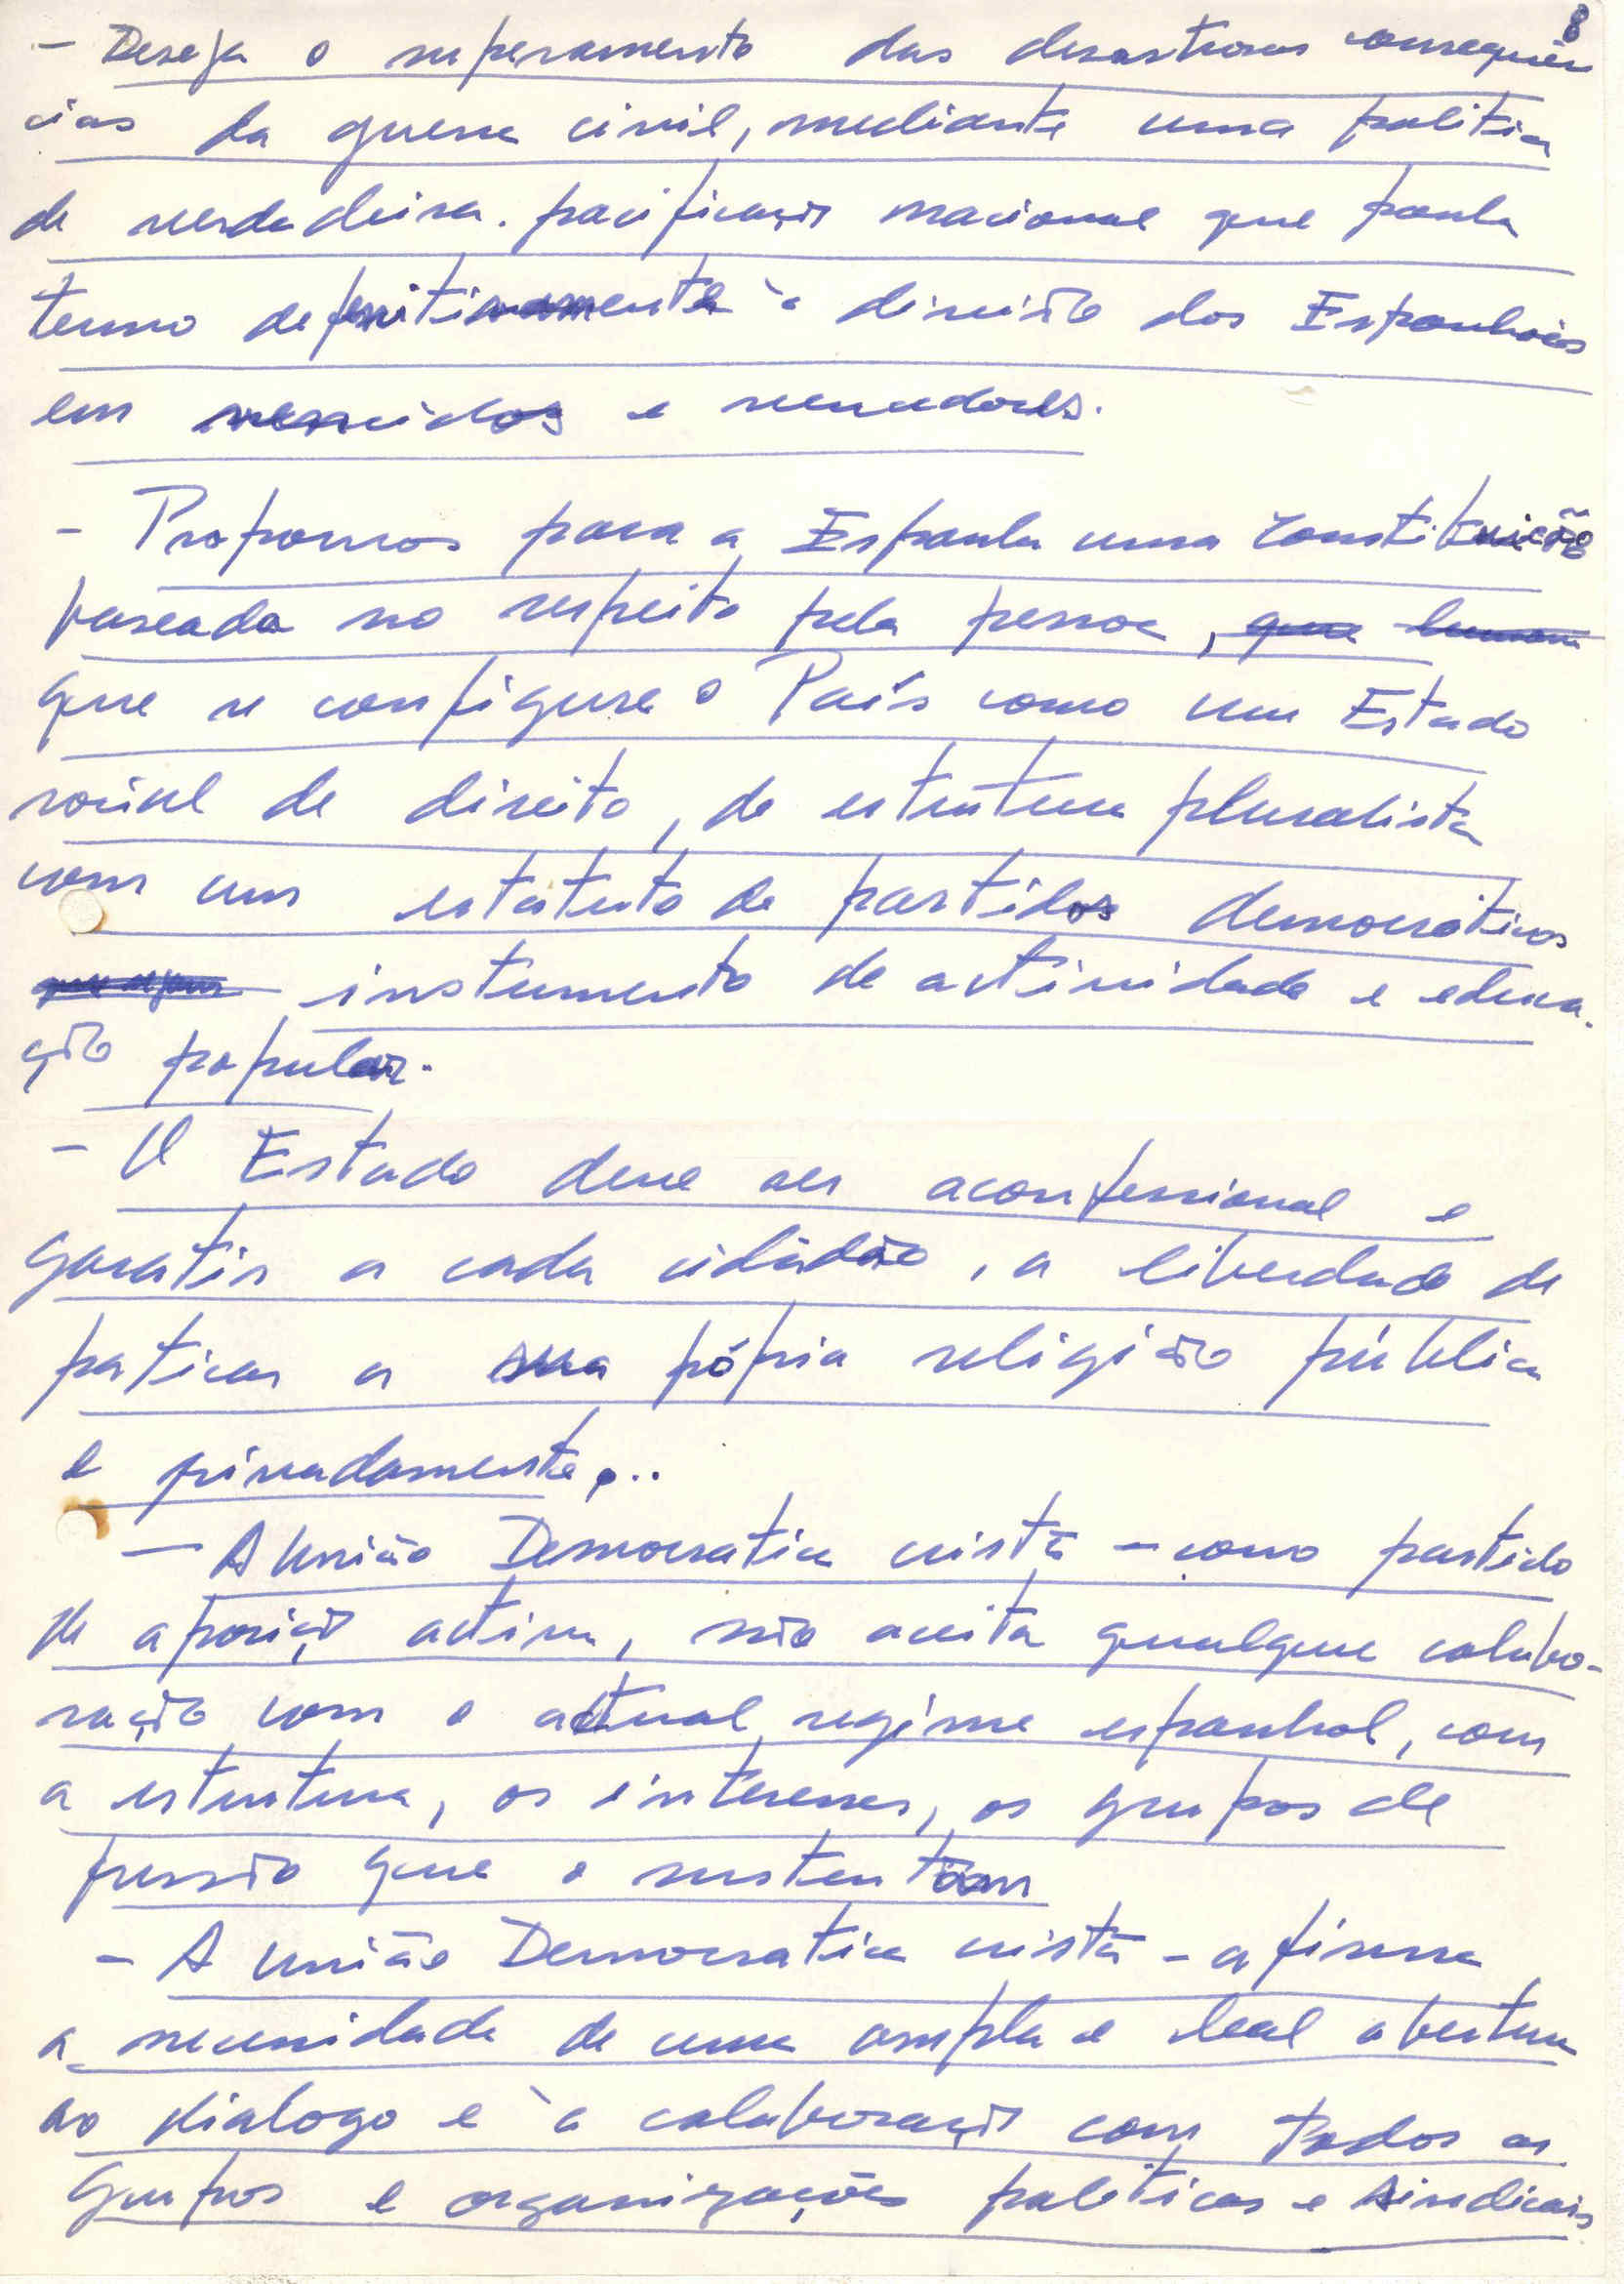 8
- Deseja o superamento das desastrosas consequên
cias da guerra civil, mediante uma politica
de verdadeira pacificação nacional que ponha
termo definitivamente à divisão dos Espanhóis
em vencidos e vencedores.
- Propomos para a Espanha uma Constituição
baseada no respeito pela pessoa, que humana
que se configure o País como um Estado
social de direito, de estrutura pluralista
com um estatuto de partidos democráticos
que sejam instrumento de actividade e educa-
ção popular.
- O Estado deve ser aconfessional e
garatir a cada cidadão, a liberdade de
praticar a sua própria religião pública
e privadamente...
- A União Democratica cristã - como partido
de aposição activa, não aceita qualquer colabo-
ração com o actual regime espanhol, com
a estrutura, os interesses, os grupos de
pressão que o sustentam
- A União Democratica cristã - afirma
a necessidade de uma ampla e leal abertura
ao dialogo e à colaboração com todos os
Grupos e organizações politicas e sindicais